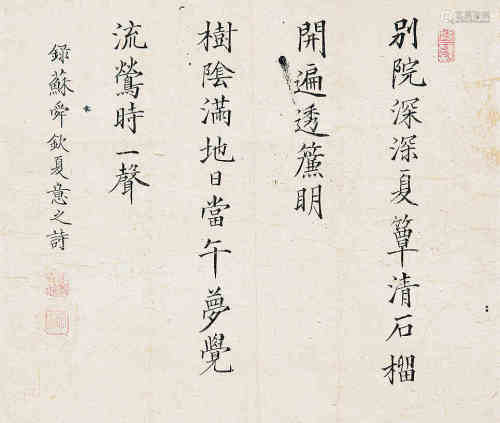 別院深深夏簟清石榴
開遍透簾明
樹陰滿地日當午夢覺
流鶯時一聲
錄蘇舜欽夏意之詩